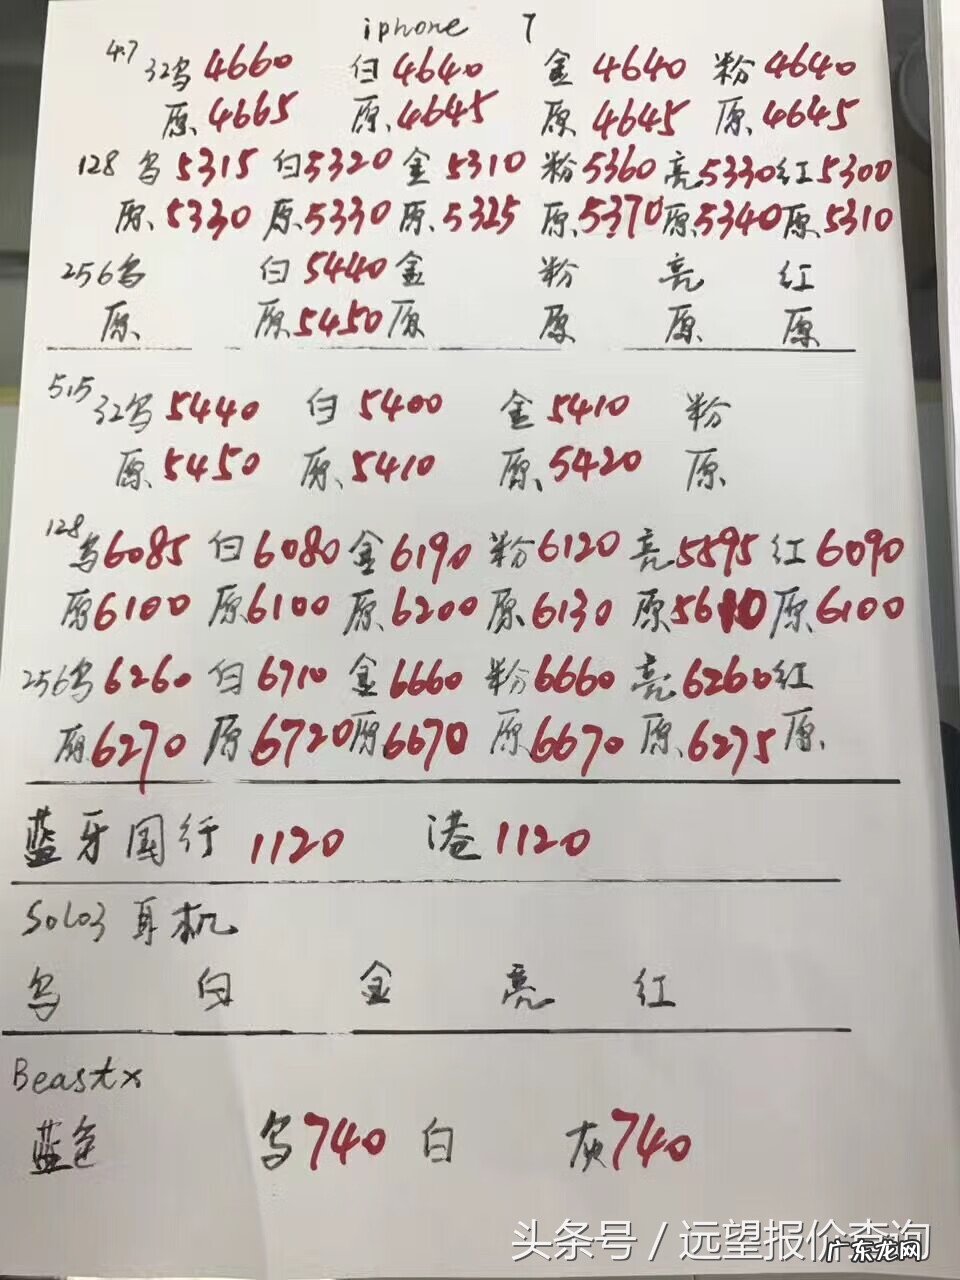 iphone 7
4.7 32乌 4660 白 4640 金 4640 粉 4640
原 4665 原 4645 原 4645 原 4645
128 乌 5315 白 5320 金 5310 粉 5360 亮 5330 红 5300
原 5330 原 5330 原 5325 原 5370 原 5340 原 5310
256乌 白 5440 金 粉 亮 红
原 原 5450 原 原 原 原
5.5 32乌 5440 白 5400 金 5410 粉
原 5450 原 5410 原 5420 原
128 乌 6085 白 6080 金 6190 粉 6120 亮 5895 红 6090
原 6100 原 6100 原 6200 原 6130 原 原 6100
256乌 6260 白 6710 金 6660 粉 6660 亮 6260 红
原 6270 原 6720 原 6670 原 6670 原 6275 原
蓝牙国行 1120 港 1120
Solo3 耳机
乌 白 金 亮 红
Beastx
蓝色 乌 740 白 灰 740
头条号 / 远望报价查询
广东龙网